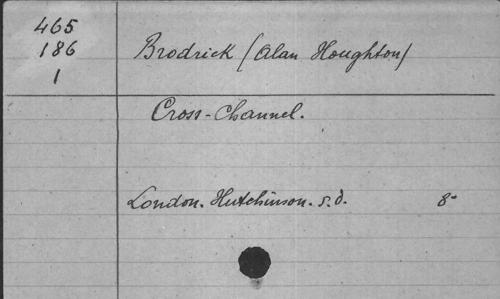 465
186
1
Brodrick (Alan Houghton)
Cross-Channel.
London. Hutchinson. s.d. 8º